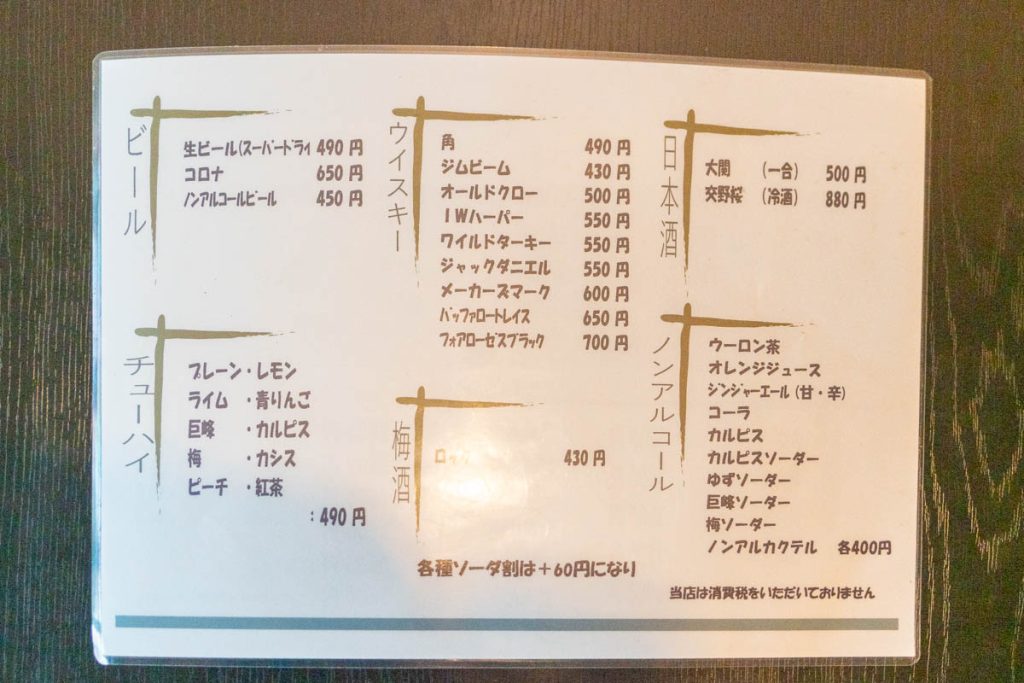 ビール
生ビール(スーパードライ 490 円
コロナ 650 円
ノンアルコールビール 450 円
チューハイ
プレーン・レモン
ライム ・青りんご
巨峰 ・カルピス
梅 ・カシス
ピーチ ・紅茶
:490 円
ウイスキー
角 490 円
ジムビーム 430 円
オールドクロー 500 円
IWハーパー 550 円
ワイルドターキー 550 円
ジャックダニエル 550 円
メーカーズマーク 600 円
バッファロートレイス 650 円
フォアローゼズブラック 700 円
梅酒
ロック 430 円
各種ソーダ割は+60円になり
日本酒
大関 (一合) 500 円
交野桜 (冷酒) 880 円
ノンアルコール
ウーロン茶
オレンジジュース
ジンジャーエール(甘・辛)
コーラ
カルピス
カルピスソーダー
ゆずソーダー
巨峰ソーダー
梅ソーダー
ノンアルカクテル 各400円
当店は消費税をいただいておりません